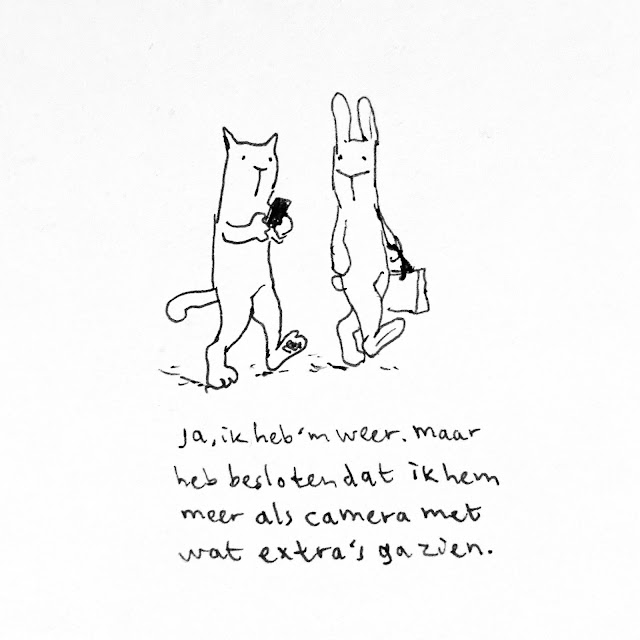 Ja, ik heb 'm weer. maar
heb besloten dat ik hem
meer als camera met
wat extra's ga zien.